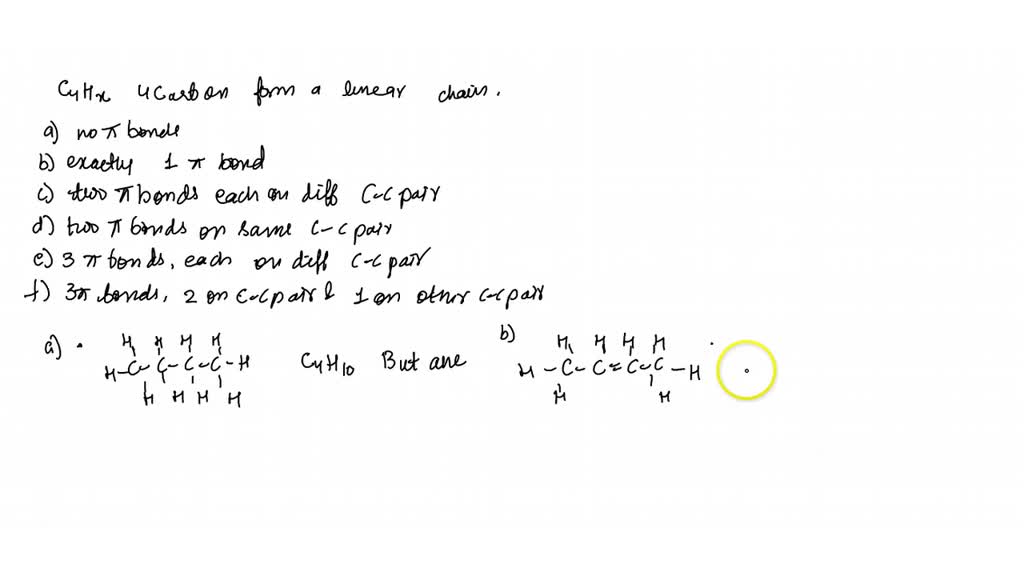 C4Hx 4Carbon form a linear chain.
a) no π bonds
b) exactly 1 π bond
c) two π bonds each on diff C-C pair
d) two π bonds on same C-C pair
e) 3 π bonds, each on diff C-C pair
f) 3π bonds, 2 on C-C pair & 1 on other C-C pair
a) H H H H
H-C-C-C-C-H C4H10 But ane
H H H H
b) H H H H
H-C-C=C-C-H
H H